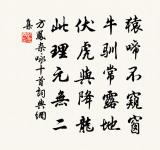 猿啼不窺窗
牛馴常露地
伏虎與降龍
此理元無二
方鳳雜詠十首詞典網
集